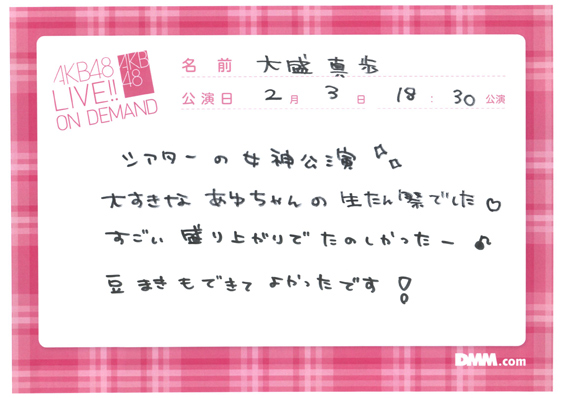 AKB48
LIVE!!
ON DEMAND
AKB
48
名前 大盛真歩
公演日 2月 3日 18:30公演
シアターの女神公演
大すきな あゆちゃんの 生たん祭でした♡
すごい 盛り上がりで たのしかったー♪
豆まきもできて よかったです！
DMM.com